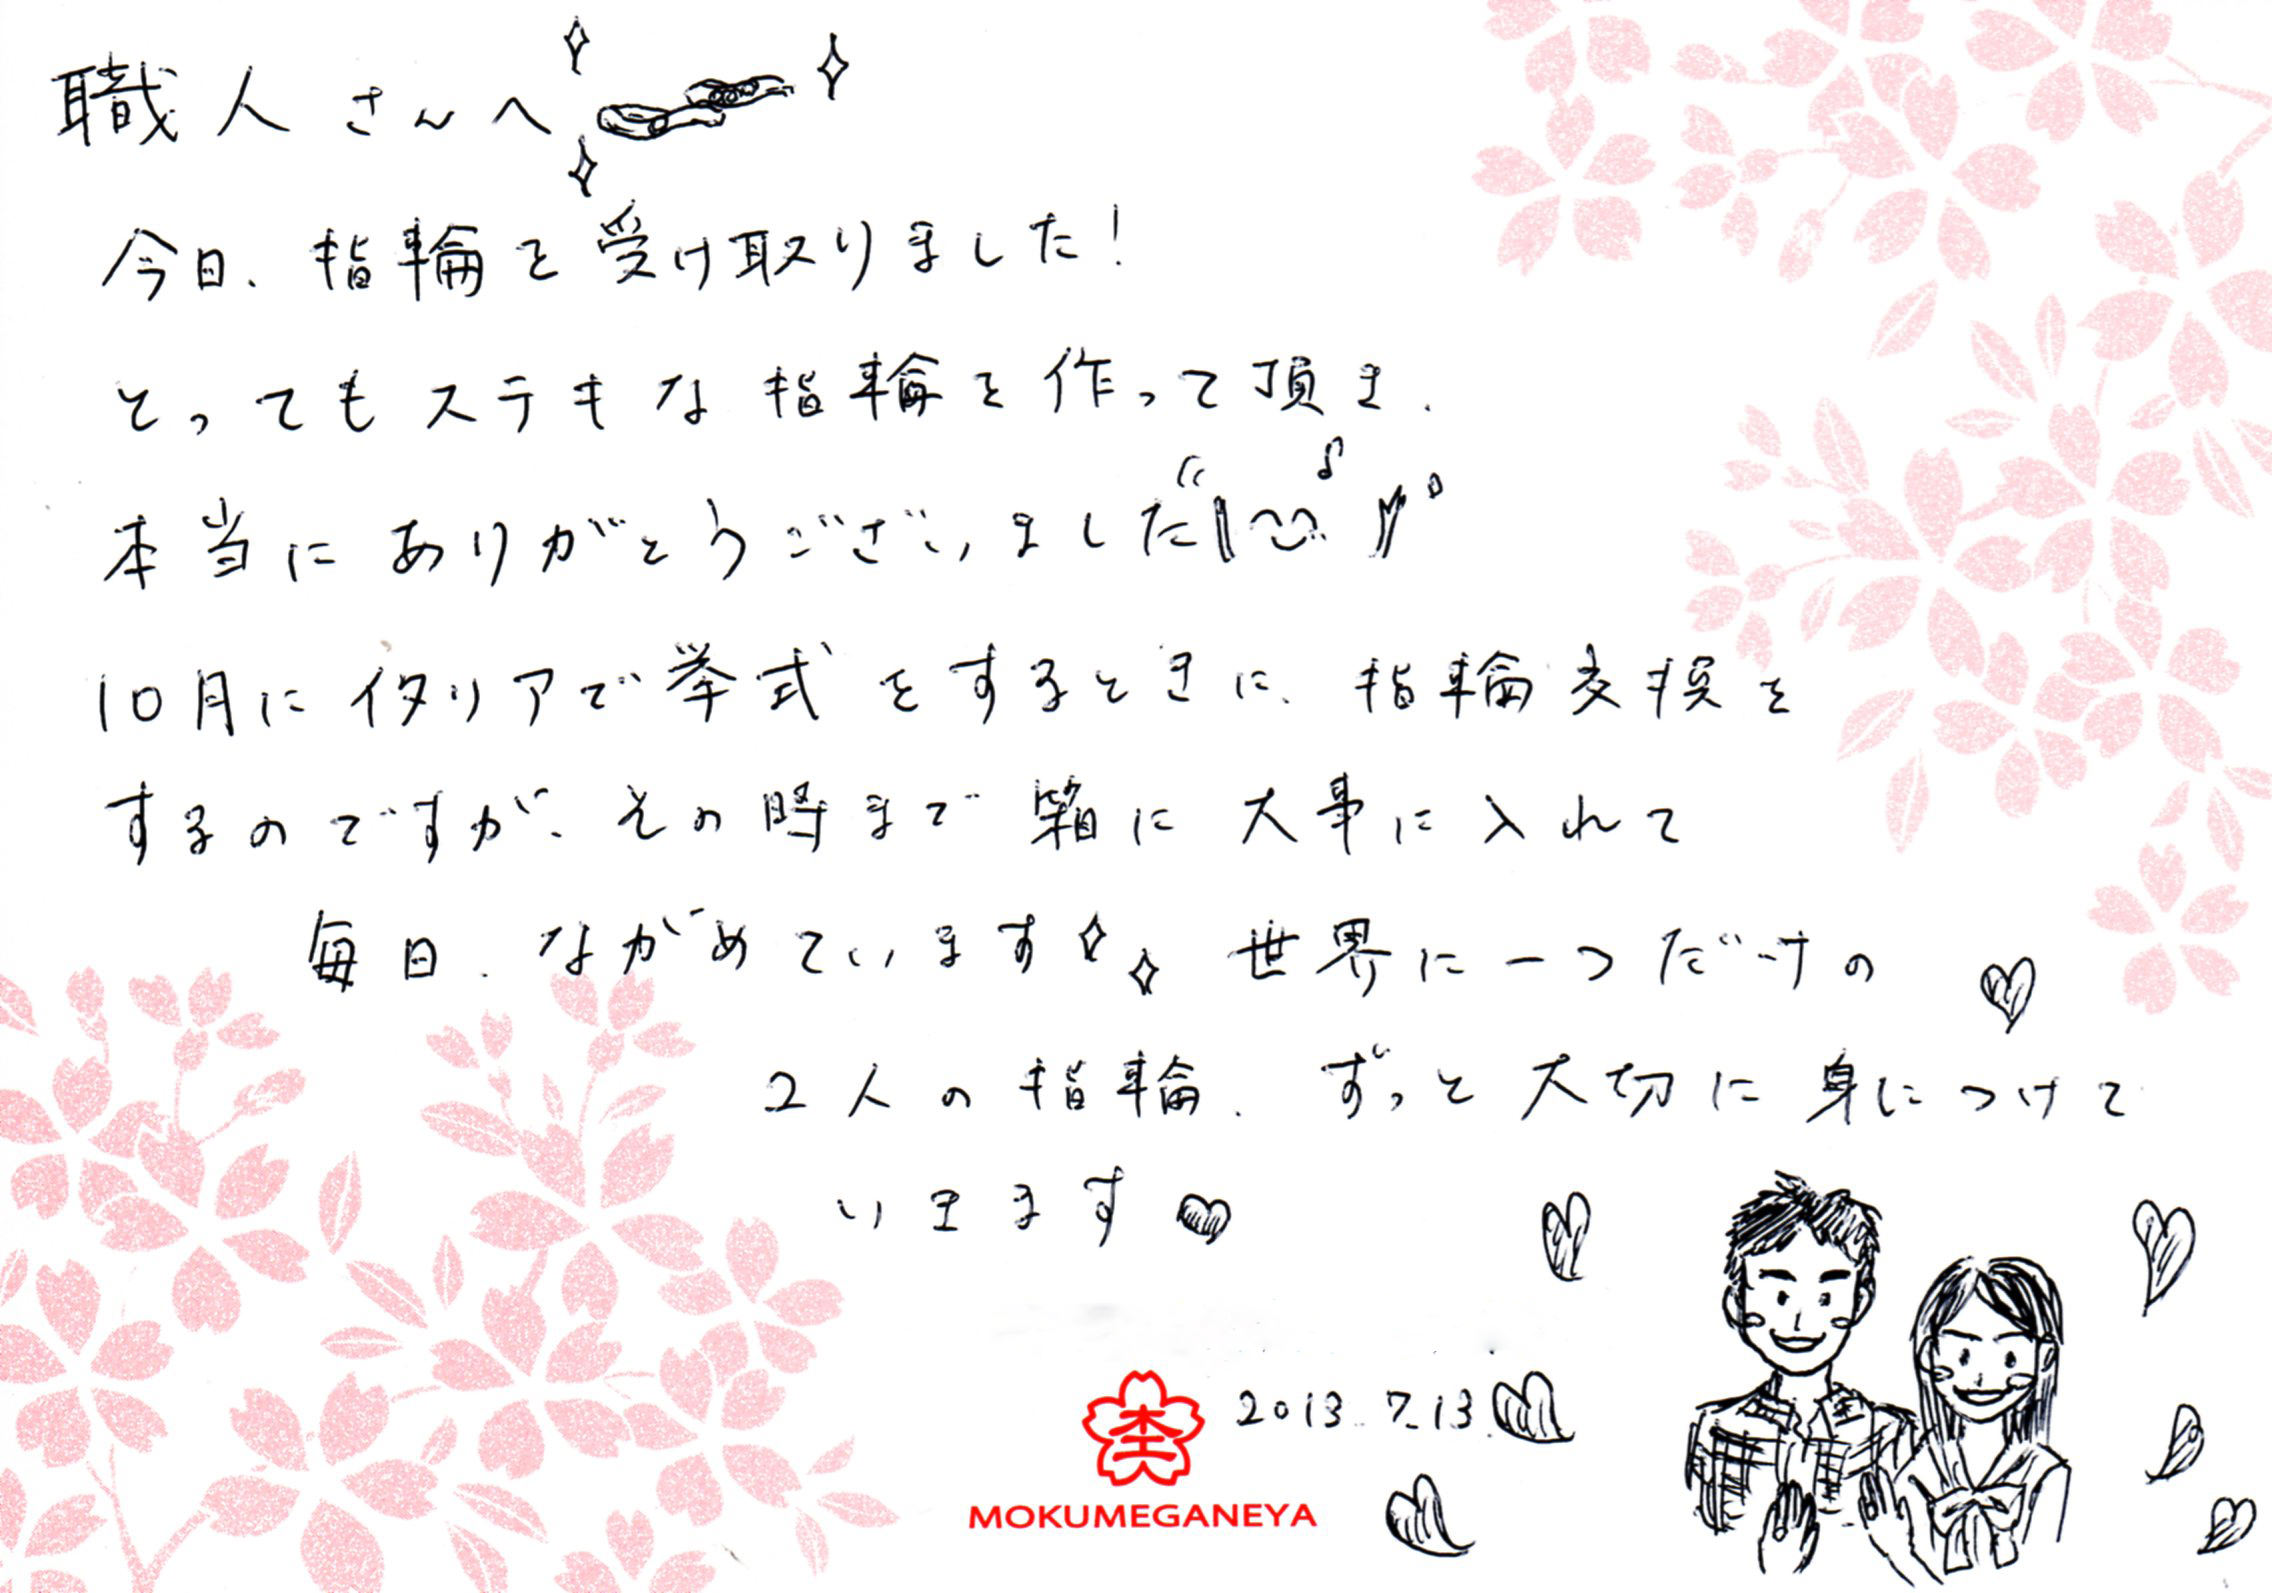 職人さんへ
今日、指輪を受け取りました！
とってもステキな指輪を作って頂き、
本当にありがとうございました
10月にイタリアで挙式をするときに、指輪交換を
するのですが、その時まで箱に大事に入れて
毎日、ながめています 世界に一つだけの
2人の指輪、ずっと大切に身につけて
いきます
2013.7.13.
MOKUMEGANEYA